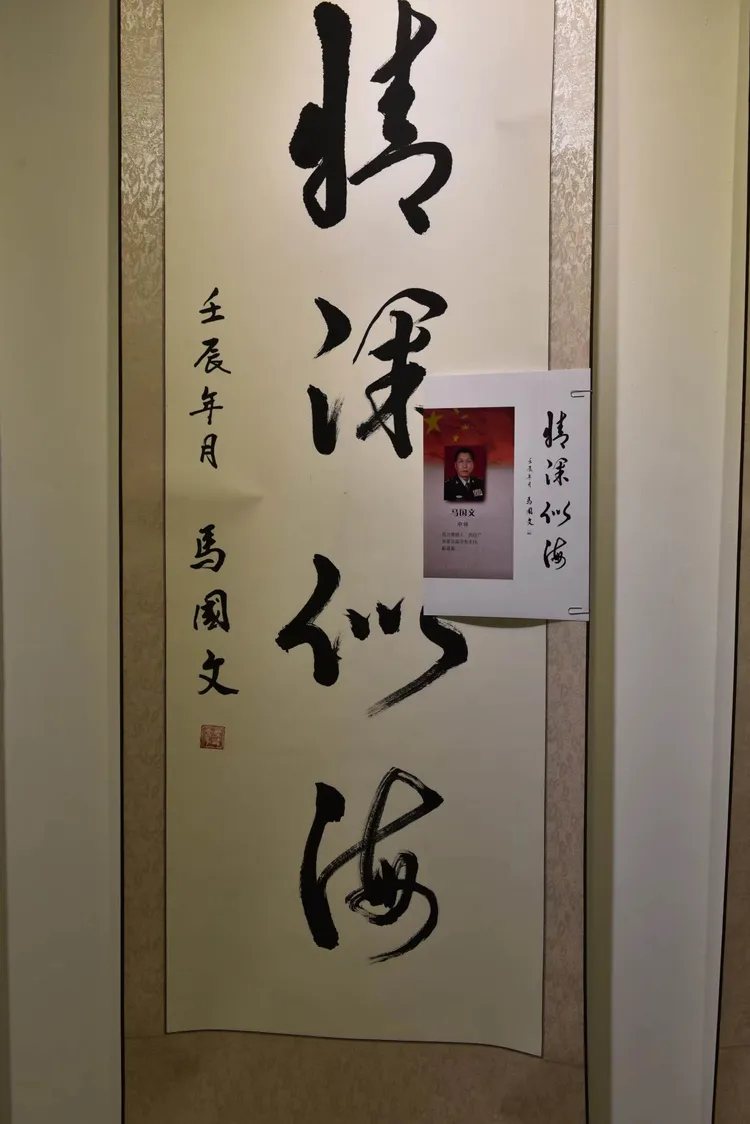 情深似海
壬辰年月
馬國文
情深似海
壬辰年月
馬國文
马国文
中将